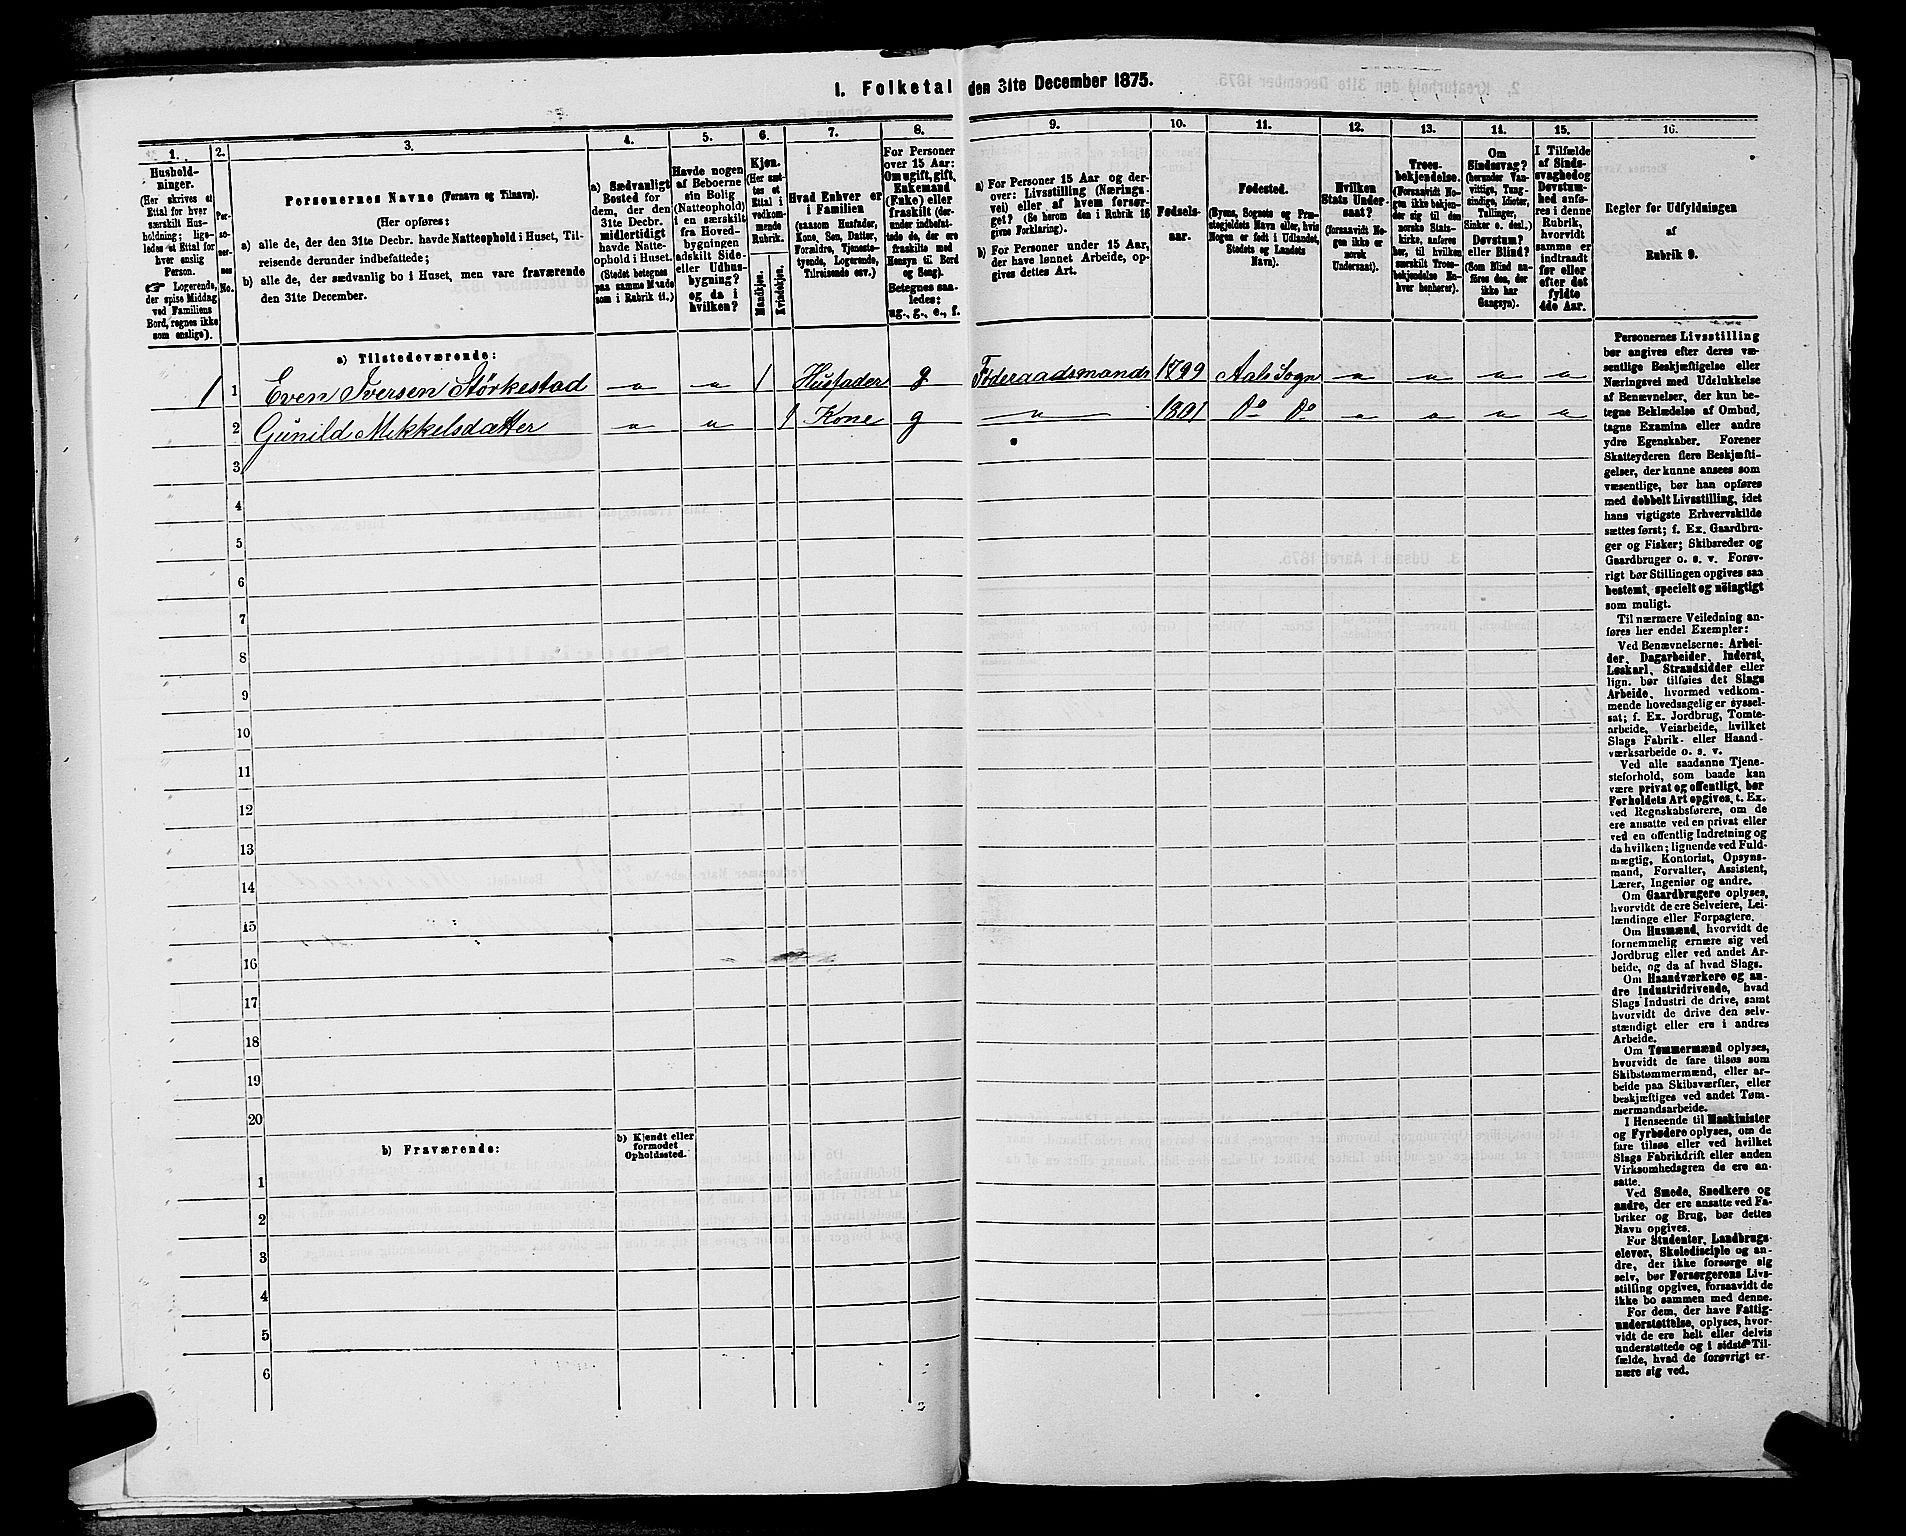 1. Folketal den 31te December 1875.
1. 2. 3. 4. 5. 6. 7. 8. 9. 10. 11. 12. 13. 14. 15. 16.
Hushold-
ninger.
(Her skrives et
Ettal for hver
særskilt Hus-
holdning; lige-
ledes et Ettal for
hver enslig
Person.
☞ Logerende,
der spise Middag
ved Familiens
Bord, regnes ikke
som enslige).
Per-
so-
ner-
nes
No.
Personernes Navne (Fornavn og Tilnavn).
(Her opføres:
a) alle de, der den 31te Decbr. havde Natteophold i Huset, Til-
reisende derunder indbefattede;
b) alle de, der sædvanlig bo i Huset, men vare fraværende
den 31te December.
a) Sædvanligt
Bosted for
dem, der den
31te Decbr.
midlertidigt
havde Natte-
ophold i Huset.
(Stedet betegnes
paa samme Maade
som i Rubrik 11.)
Havde nogen
af Beboerne
sin Bolig
(Natteophold)
i en særskilt
fra Hoved-
bygningen
adskilt Side-
eller Udhus-
bygning?
og da i
hvilken?
Kjøn.
(Her sæt-
tes et
Ettal i
vedkom-
mende
Rubrik.
Mandkjøn.
Kvindekjøn.
Hvad Enhver er
i Familien
(saasom Husfader,
Kone, Søn, Datter,
Forældre, Tjeneste-
tyende, Logerende,
Tilreisende osv.)
For Personer
over 15 Aar:
Om ugift, gift,
Enkemand
(Enke) eller
fraskilt (der-
under indbefat-
tede de, der ere
fraskilte med
Hensyn til Bord
og Seng).
Betegnes saa-
ledes:
ug., g., e., f.
a) For Personer 15 Aar og der-
over: Livsstilling (Nærings-
vei) eller af hvem forsør-
get? (Se herom den i Rubrik 16
givne Forklaring).
b) For Personer under 15 Aar,
der have lønnet Arbeide, op-
gives dettes Art.
Fødsels-
aar.
Fødested.
(Byens, Sognets og Præ-
stegjeldets Navn eller, hvis
Nogen er født i Udlandet,
Stedets og Landets
Navn).
Hvilken
Stats Under-
saat?
(forsaavidt No-
gen ikke er
norsk
Undersaat).
Troes-
bekjendelse.
(Forsaavidt No-
gen ikke bekjen-
der sig til den
norske Stats-
kirke, anføres
her, til hvilken
særskilt Troes-
bekjendelse En-
hver henhører).
Om
Sindssvag?
(herunder Van-
vittige, Tung-
sindige, Idioter,
Tullinger,
Sinker o. desl.).
Døvstum?
eller Blind?
(Som Blind an-
føres den, der
ikke har
Gangsyn).
I Tilfælde
af Sinds-
svaghed og
Døvstum-
hed anfø-
res i denne
Rubrik,
hvorvidt
samme er
indtraadt
før eller
efter det
fyldte
4de Aar.
Regler for Udfyldningen
af
Rubrik 9.
a) Tilstedeværende:
1 1 Even Iversen Störkestad " " 1 Husfader g Föderaadsmand 1799 Aals Sogn " " " "
2 Gunild Mikkelsdatter " " 1 Kone g " 1801 Do Do " " " "
3
4
5
6
7
8
9
10
11
12
13
14
15
16
17
18
19
20
b) Fraværende:
b) Kjendt eller
formodet
Opholdssted.
1
2
3
4
5
6
Personernes Livsstilling
bør angives efter deres væ-
sentlige Beskjæftigelse eller
Næringsvei med Udelukkelse
af Benævnelser, der kun be-
tegne Beklædelse af Ombud,
tagne Examina eller andre
ydre Egenskaber. Forener
Skatteyderen flere Beskjæfti-
gelser, der kunne ansees som
væsentlige, bør han opføres
med dobbelt Livsstilling, idet
hans vigtigste Erhvervskilde
sættes først; f. Ex. Gaardbru-
ger og Fisker; Skibsreder og
Gaardbruger o. s. v. Forøv-
rigt bør Stillingen opgives saa
bestemt, specielt og nöiagtigt
som muligt.
Til nærmere Veiledning an-
føres her endel Exempler:
Ved Benævnelserne: Arbei-
der, Dagarbeider, Inderst,
Løskarl, Strandsidder eller
lign. bør tilføies det Slags
Arbeide, hvormed vedkom-
mende hovedsagelig er syssel-
sat; f. Ex. Jordbrug, Tomte-
arbeide, Veiarbeide, hvilket
Slags Fabrik- eller Haand-
værksarbeide o. s. v.
Ved alle saadanne Tjene-
steforhold, som baade kan
være privat og offentligt, bør
Forholdets Art opgives, t. Ex.
ved Regnskabsførere, om de
ere ansatte ved en privat eller
ved en offentlig Indretning og
da hvilken; lignende ved Fuld-
mægtig, Kontorist, Opsyns-
mand, Forvalter, Assistent,
Lærer, Ingeniør og andre.
Om Gaardbrugere oplyses,
hvorvidt de ere Selveiere, Lei-
lændinge eller Forpagtere.
Om Husmænd, hvorvidt de
fornemmelig ernære sig ved
Jordbrug eller ved andet Ar-
beide, og da af hvad Slags.
Om Haandværkere og an-
dre Industridrivende, hvad
Slags Industri de drive, samt
hvorvidt de drive den selv-
stændigt eller ere i andres
Arbeide.
Om Tømmermænd oplyses,
hvorvidt de fare tilsøs som
Skibstømmermænd, eller ar-
beide paa Skibsværfter, eller
beskjæftiges ved andet Tøm-
mermandsarbeide.
I Henseende til Maskinister
og Fyrbødere oplyses, om de
fare tilsøs eller ved hvilket
Slags Fabrikdrift eller anden
Virksomhedsgren de ere an-
satte.
Ved Smede, Snedkere og
andre, der ere ansatte ved Fa-
briker og Brug, bør dettes
Navn opgives.
For Studenter, Landbrugs-
elever, Skoledisciple og an-
dre, der ikke forsørge sig
selv, bør Forsørgerens Livs-
stilling opgives, forsaavidt de
ikke bo sammen med denne.
For dem, der have Fattig-
understøttelse, oplyses, hvor-
vidt de ere helt eller delvis
understøttede og i sidste Til-
fælde, hvad de forøvrigt er-
nære sig ved.